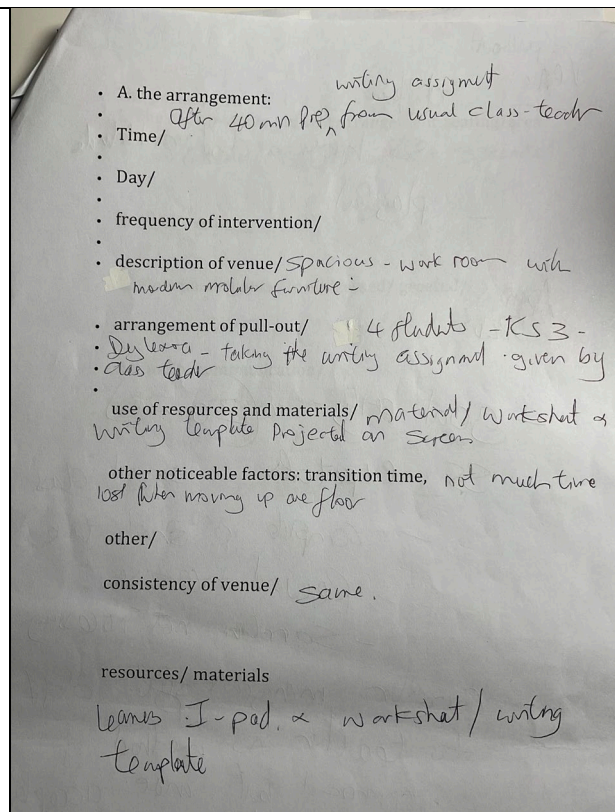 writing assigment
• A. the arrangement:
•
after 40 min Prep from usual class-teachr
• Time/
•
• Day/
•
• frequency of intervention/
•
• description of venue/ Spacious - work room with
modern molular furniture -
• arrangement of pull-out/ 4 students - KS3 -
• Dyslexia - taking the writing assignmt given by
• class teachr
•
use of resources and materials/ material/ worksheet &
writing template Projected on Screen
other noticeable factors: transition time, not much time
lost when moving up one floor
other/
consistency of venue/ Same.
resources/ materials
I-pad. & workshet/ writing
template